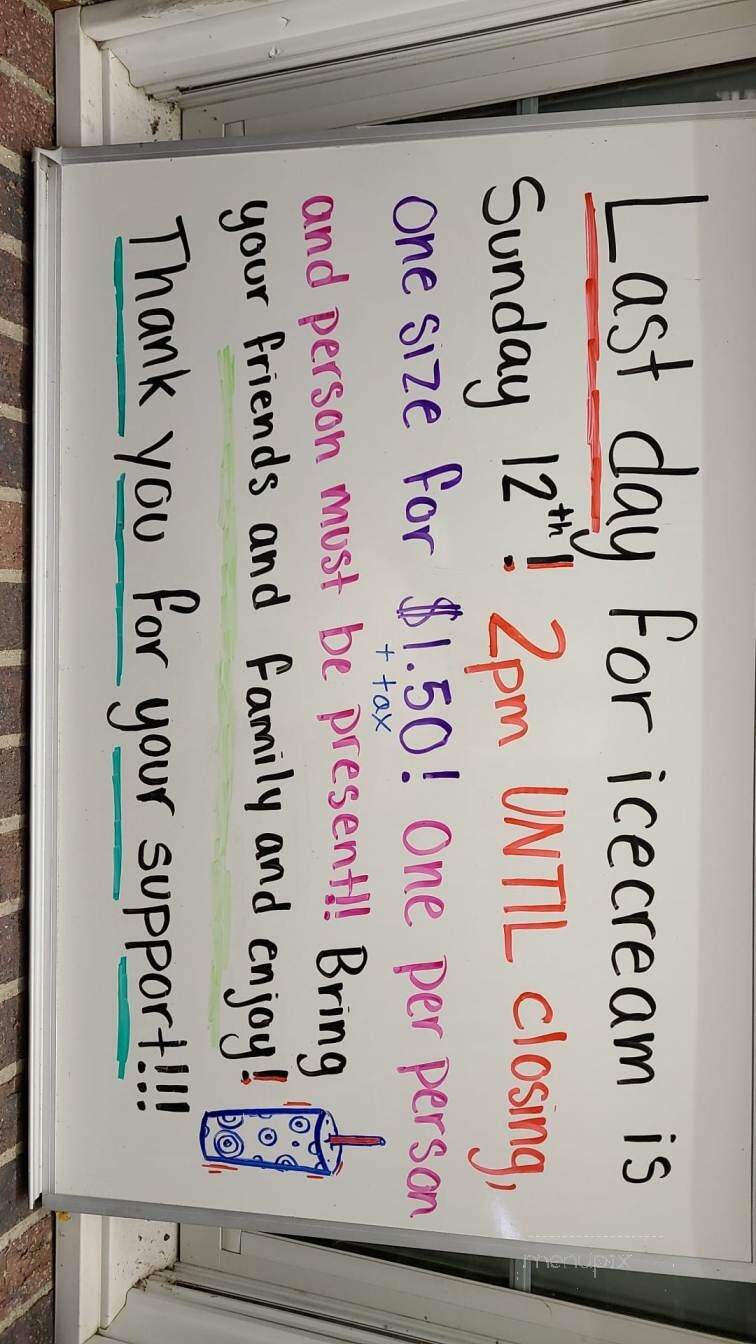 Last day for icecream is
Sunday 12th! 2pm UNTIL closing,
One size for $1.50! One per person
+ tax
and person must be present!! Bring
your friends and family and enjoy!
Thank you for your support!!!
menupix